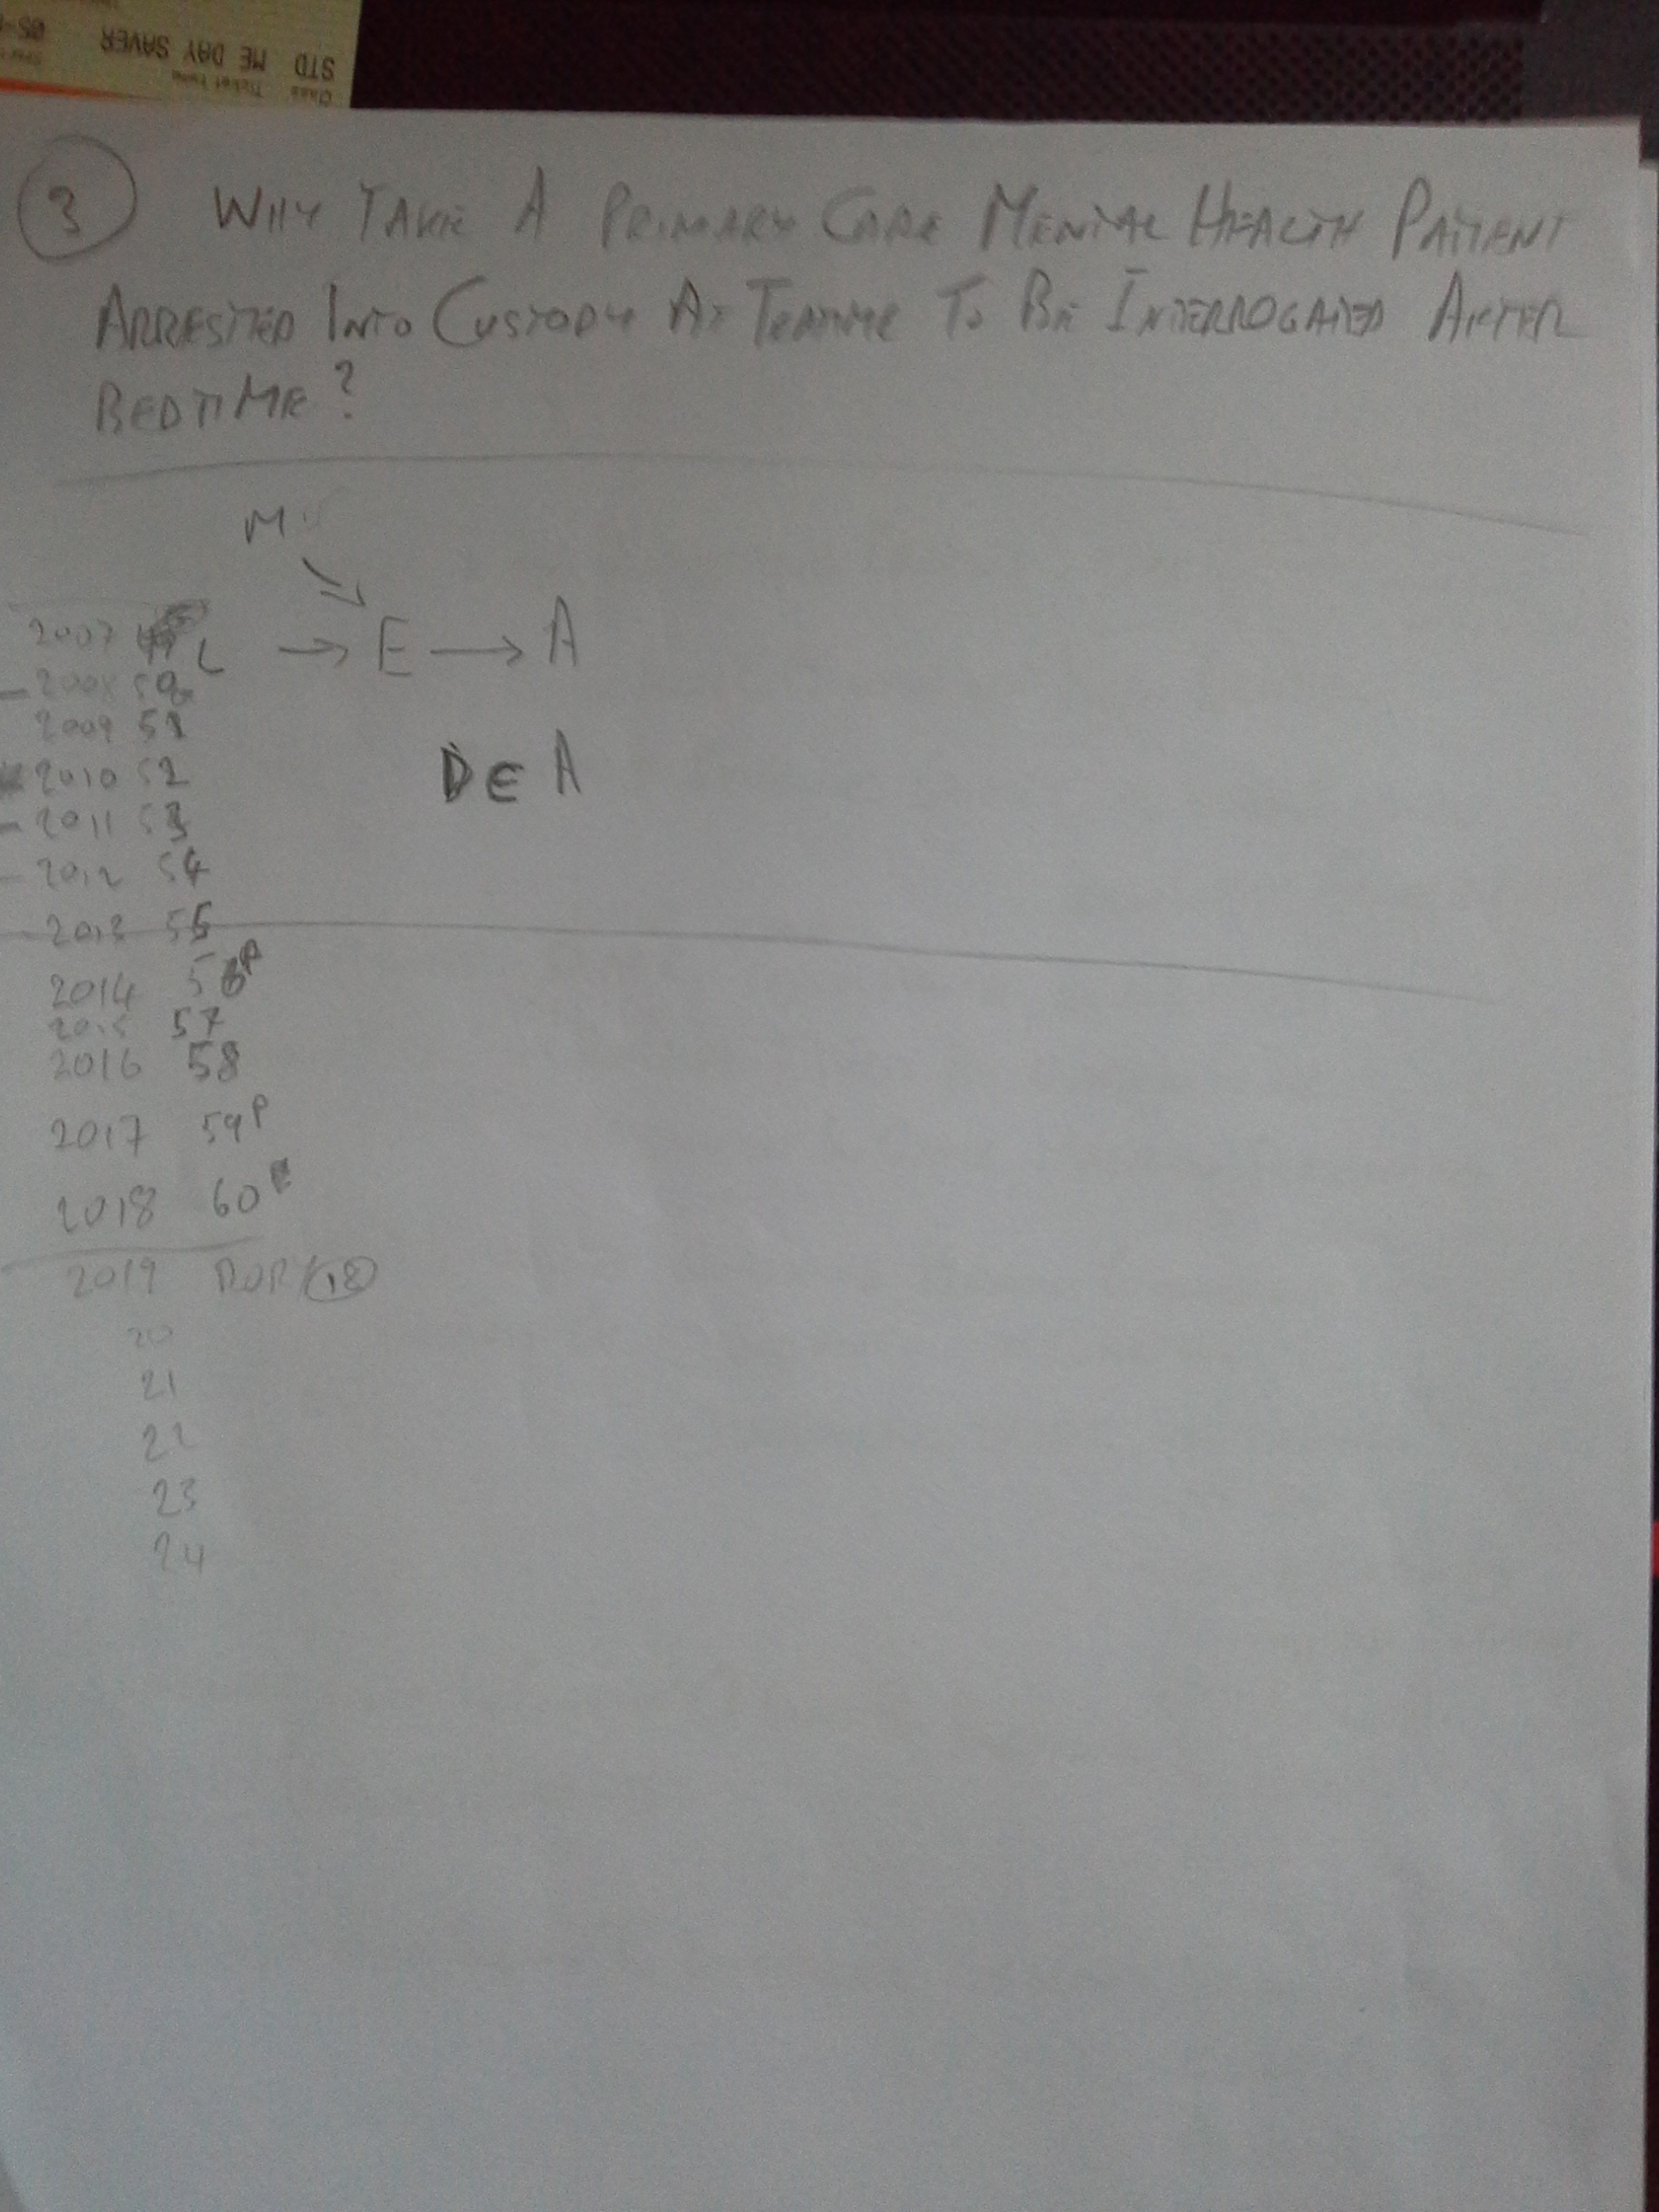 STD ME DAY SAVER 05-
Class Ticket type
3 WHY TAKE A PRIMARY CARE MENTAL HEALTH PATIENT
ARRESTED INTO CUSTODY AT TEATIME TO BE INTERROGATED AFTER
BEDTIME?
M
2007 L → E → A
2008 50
2009 51
D E A
2010 52
2011 53
2012 54
2013 55
2014 56P
2015 57
2016 58
2017 59P
2018 60
2019
20
21
22
23
24